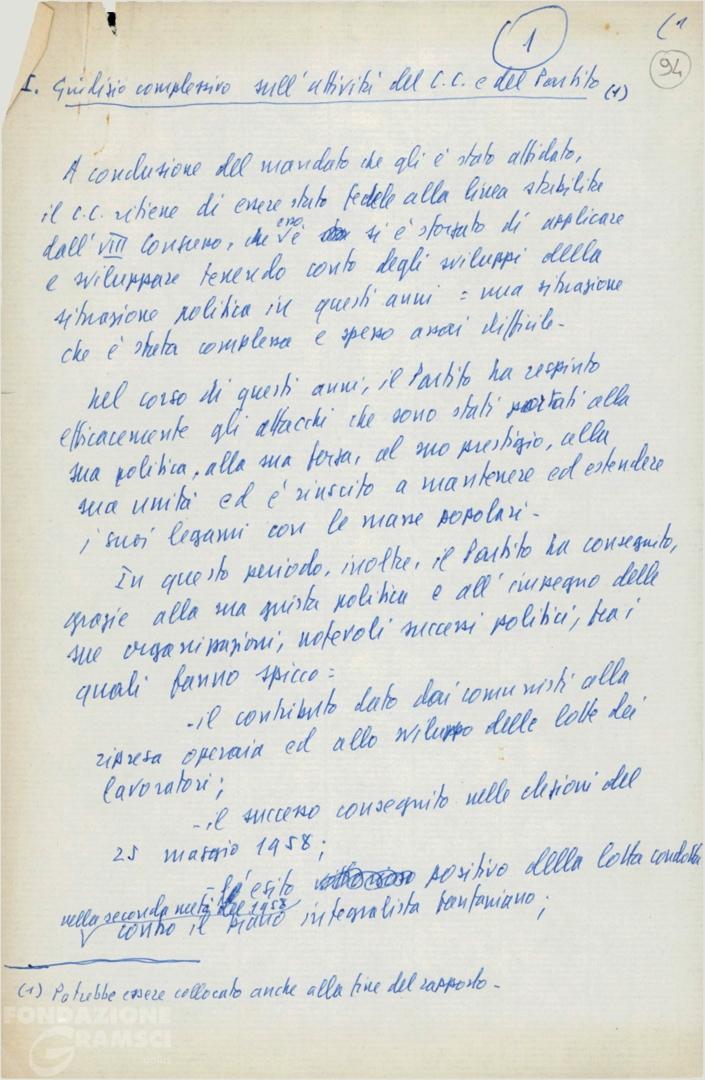 1
(1
94
I. Giudizio complessivo sull'attività del C.C. e del Partito (1)
A conclusione del mandato che gli è stato affidato,
il C.C. ritiene di essere stato fedele alla linea stabilita
dall'VIII Congresso, che esso si è sforzato di applicare
e sviluppare tenendo conto degli sviluppi della
situazione politica in questi anni: una situazione
che è stata complessa e spesso assai difficile.
Nel corso di questi anni, il Partito ha respinto
efficacemente gli attacchi che sono stati portati alla
sua politica, alla sua forza, al suo prestigio, alla
sua unità ed è riuscito a mantenere ed estendere
i suoi legami con le masse popolari.
In questo periodo, inoltre, il Partito ha conseguito,
grazie alla sua giusta politica e all'impegno delle
sue organizzazioni, notevoli successi politici, tra i
quali fanno spicco:
- il contributo dato dai comunisti alla
ripresa operaia ed allo sviluppo delle lotte dei
lavoratori;
- il successo conseguito nelle elezioni del
25 maggio 1958;
- l'esito positivo della lotta condotta
nella seconda metà del 1958
contro il piano integralista fanfaniano;
(1) Potrebbe essere collocato anche alla fine del rapporto.
FONDAZIONE
GRAMSCI
onlus